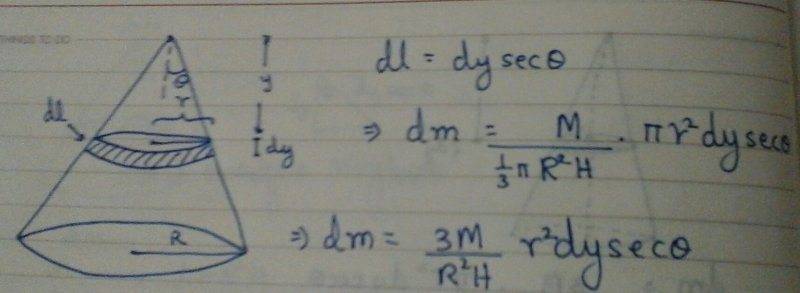 THINGS TO DO
θ
r
y
dl
dy
R
dl = dy secθ
⇒ dm = M / (1/3 π R²H) · πr²dy secθ
⇒ dm = 3M / (R²H) r²dy secθ